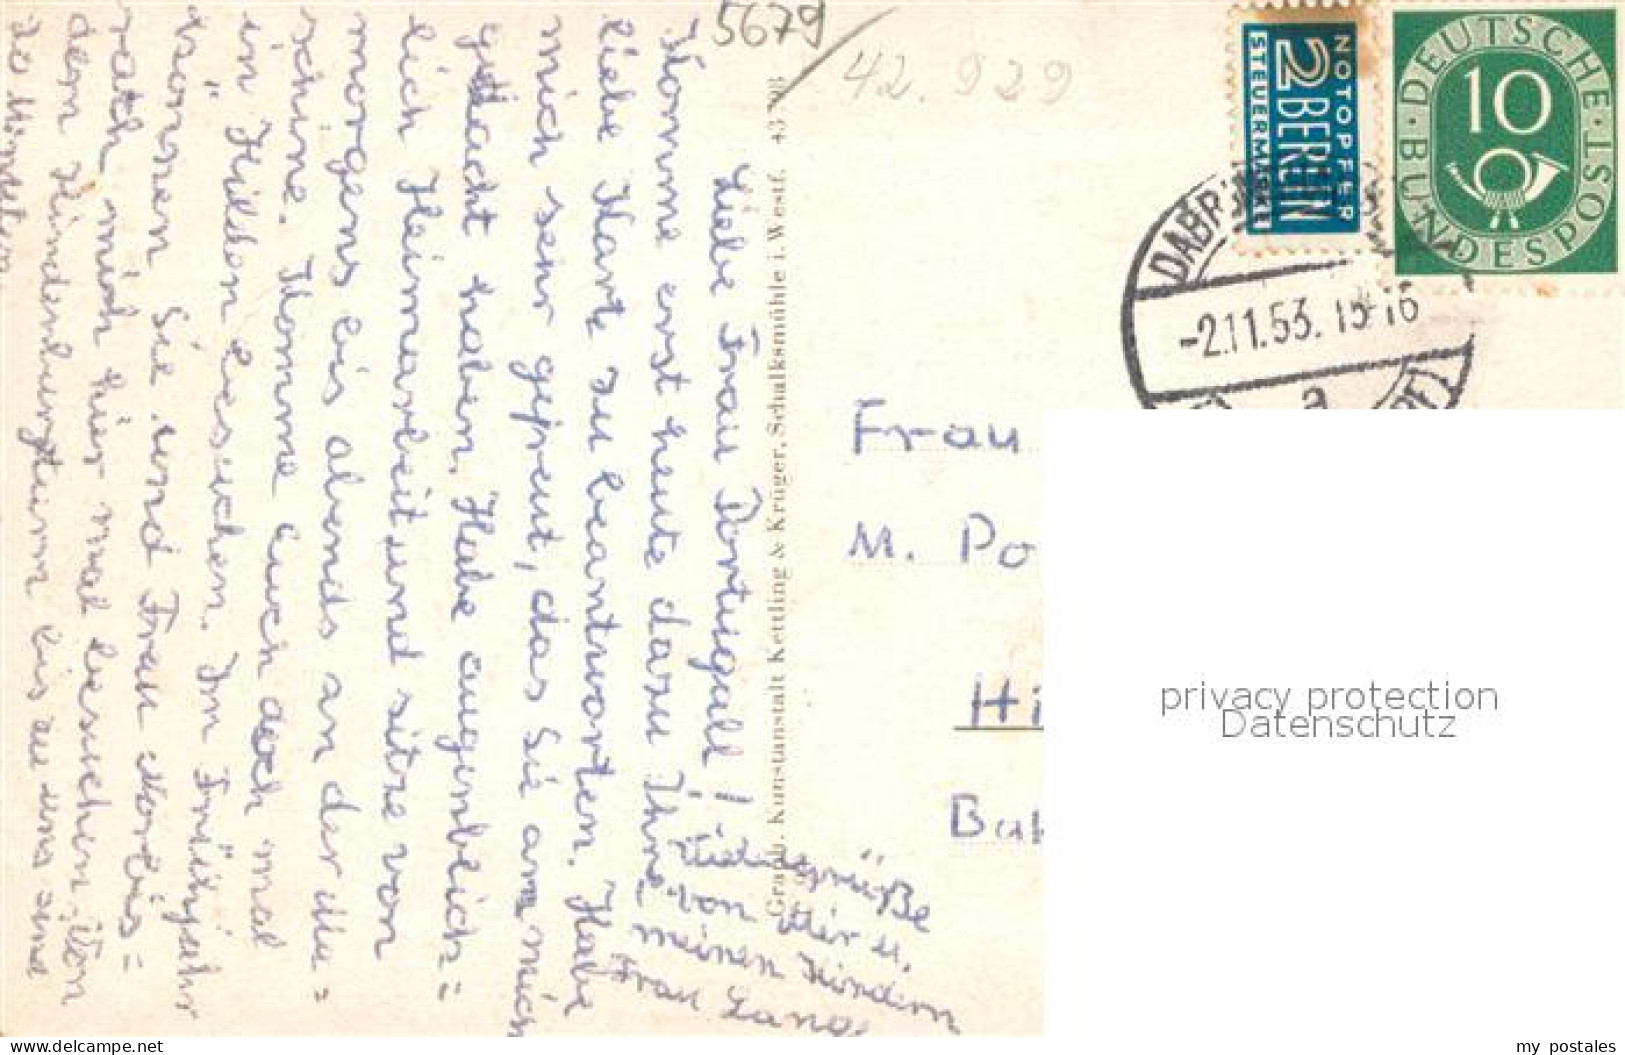 5679
42.929
NOTOPFER
2 BERLIN
STEUERMARKE
DEUTSCHE BUNDESPOST
10
-2.11.53. 15-16
a
Liebe Frau Portugall!
Komme erst heute dazu Ihre
liebe Karte zu beantworten. Habe
mich sehr gefreut, das Sie an mich
gedacht haben. Habe augenblick=
lich Heimarbeit und sitze von
morgens bis abends an der Ma=
schine. Komme Euch doch mal
in Hilden besuchen. Im Frühjahr
müssen Sie und Frau
mich hier mal besuchen. Von
dem Hindenburgturm bis zu uns
Grüße
von Mir u.
meinen Kindern
Frau Lang
Graph. Kunstanstalt Kettling & Krüger, Schalksmühle i. Westf.
Frau
M. Po
Hi
Bah
privacy protection
Datenschutz
my postales
www.delcampe.net